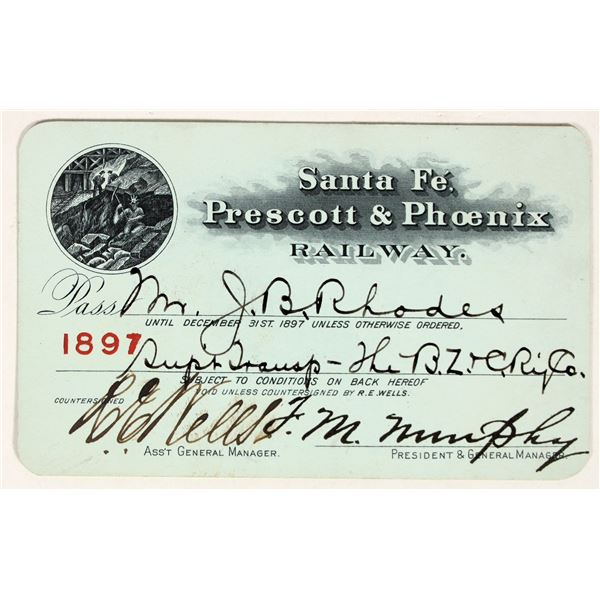 Santa Fé,
Prescott & Phœnix
RAILWAY.
Pass Mr. J. B. Rhodes
UNTIL DECEMBER 31ST. 1897 UNLESS OTHERWISE ORDERED,
1897
Supt Transp - The B. Z. & C. Ry Co.
SUBJECT TO CONDITIONS ON BACK HEREOF
VOID UNLESS COUNTERSIGNED BY R.E. WELLS.
COUNTERSIGNED
R E Wells F. M. Murphy
ASS'T GENERAL MANAGER. PRESIDENT & GENERAL MANAGER.